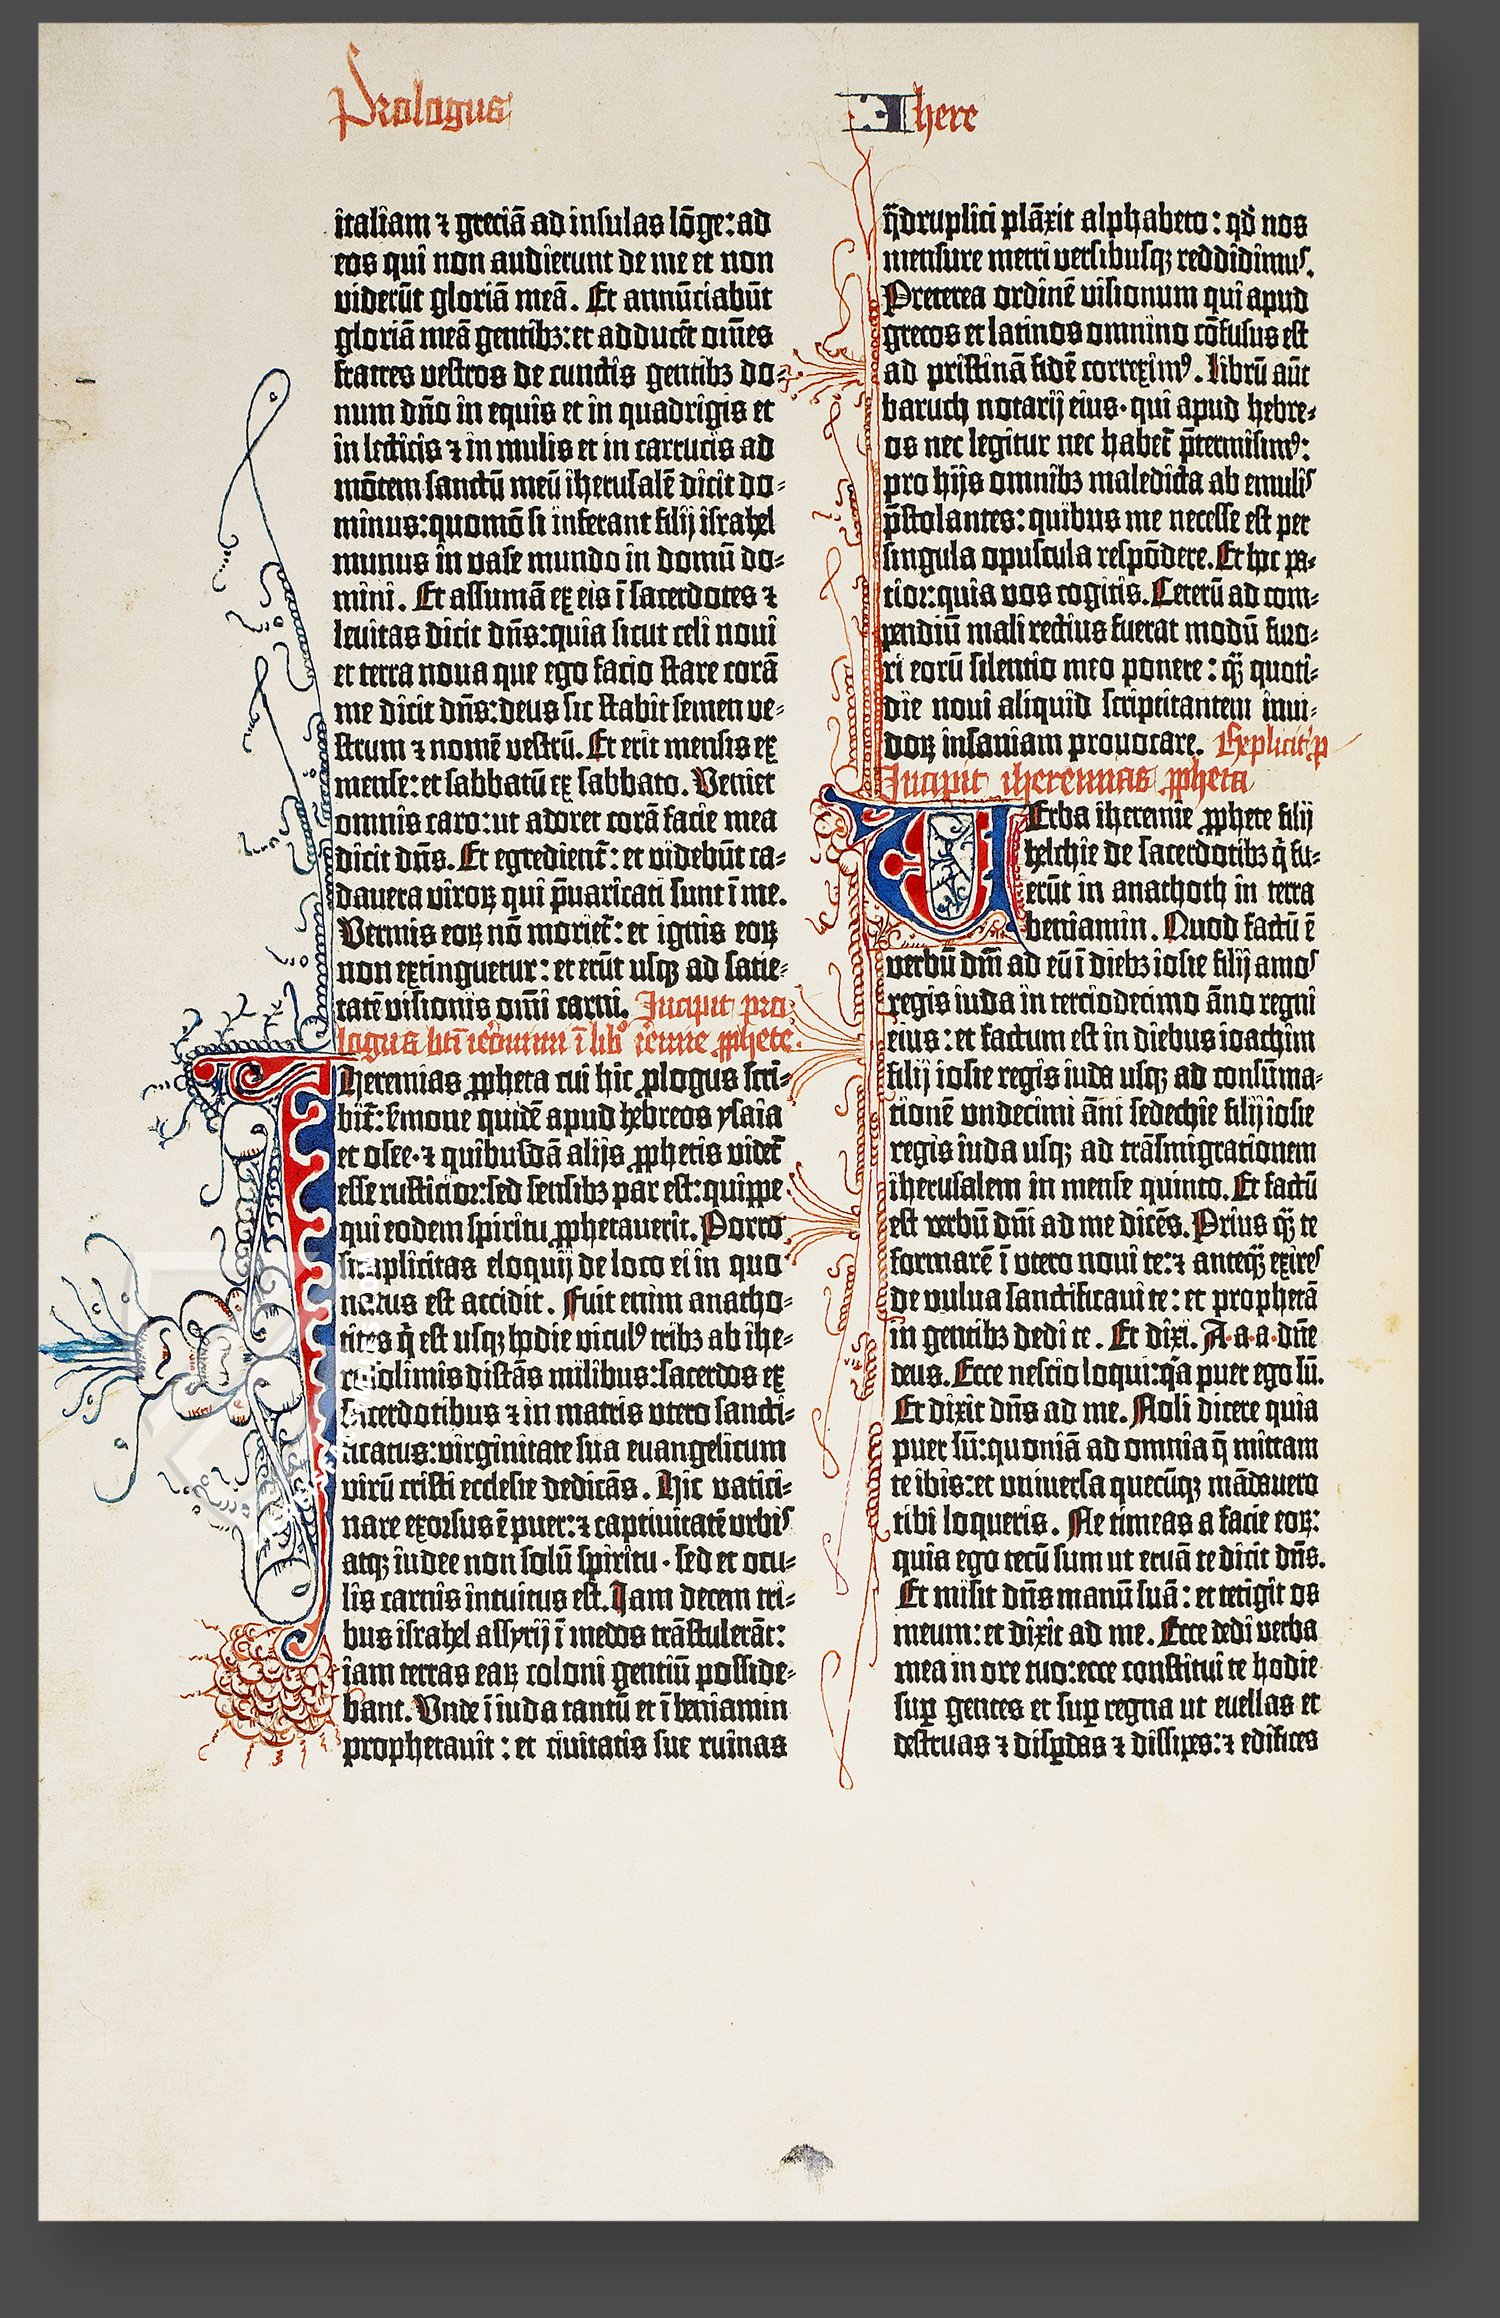 Prologus
Jhere
italiam ⁊ greciā ad insulas lōge: ad
eos qui non audierunt de me et non
viderūt gloriā meā. Et annūciabūt
gloriā meā gentibꝫ: et adducēt om̄es
fratres vestros de cunctis gentibꝫ do-
num dn̄o in equis et in quadrigis et
in lecticis ⁊ in mulis et in carrucis ad
mōtem sanctū meū iherusalē dicit do-
minus: quomō si inferant filij israhel
munus in vase mundo in domū do-
mini. Et assumā ex eis ī sacerdotes ⁊
levitas dicit dn̄s: quia sicut celi novi
et terra nova que ego facio stare corā
me dicit dn̄s: deus sic stabit semen ve-
strum ⁊ nomē vestrū. Et erit mensis ex
mense: et sabbatū ex sabbato. Veniet
omnis caro: ut adoret corā facie mea
dicit dn̄s. Et egredient᷑: et videbūt ca-
davera viroꝝ qui p̄varicati sunt ī me.
Vermis eoꝝ nō moriet᷑: et ignis eoꝝ
non extinguetur: et erūt usqꝫ ad satie-
tatē visionis om̄i carni. Incipit pro-
logus bt̄i ieronimi ī libº ieremie ꝓphete.
Iheremias ꝓpheta cui hic ꝓlogus scri-
bit᷑: s̄mone quidē apud hebreos ysaia
et osee· ⁊ quibusdā alijs ꝓphetis videt᷑
esse rusticior: sed sensibꝫ par est: quippe
qui eodem spiritu ꝓphetaverit. Porro
simplicitas eloquij de loco ei in quo
natus est accidit. Fuit enim anatho-
tites q̄ est usqꝫ hodie viculꝰ tribꝫ ab ihe-
rosolimis distās milibus: sacerdos ex
sacerdotibus ⁊ in matris utero sancti-
ficatus: virginitate sua evangelicum
virū cristi ecclesie dedicās. Hic vatici-
nare exorsus ē puer: ⁊ captivitatē urbis
atqꝫ iudee non solū spiritu· sed et ocu-
lis carnis intuitus est. Iam decem tri-
bus israhel assyrij ī medos trāstulerāt:
iam terras eaꝝ coloni gentiū posside-
bant. Unde ī iuda tantū et ī beniamin
prophetavit: et civitatis sue ruinas
q̄druplici plāxit alphabeto: qd̓ nos
mensure metri versibusqꝫ reddidimus.
Preterea ordinē visionum qui apud
grecos et latinos omnino cōfusus est
ad pristinā fidē correximꝰ. Librū aūt
baruch notarij eius· qui apud hebre-
os nec legitur nec habet᷑ p̄termisimꝰ:
pro hijs omnibꝫ maledicta ab emulis
p̄stolantes: quibus me necesse est per
singula opuscula respōdere. Et hoc pa-
tior: quia vos cogitis. Ceterū ad com-
pendiū mali rectius fuerat modū furo-
ri eorū silentio meo ponere: qꝫ̄ quoti-
die novi aliquid scriptitantem invi-
doꝝ insaniam provocare. Explicit p
Incipit iheremias ꝓpheta
Verba iheremie ꝓphete filij
helchie de sacerdotibꝫ q̄ fu-
erūt in anathoth in terra
beniamin. Quod factū ē
verbū dn̄i ad eū ī diebꝫ iosie filij amos
regis iuda in terciodecimo āno regni
eius: et factum est in diebus ioachim
filij iosie regis iuda usqꝫ ad consūma-
tionē undecimi āni sedechie filij iosie
regis iuda usqꝫ ad trāsmigrationem
iherusalem in mense quinto. Et factū
est verbū dn̄i ad me dicēs. Prius qꝫ̄ te
formarē ī utero novi te: ⁊ anteqꝫ̄ exires
de vulva sanctificavi te: et prophetā
in gentibꝫ dedi te. Et dixi. A·a·a·dn̄e
deus. Ecce nescio loqui: qꝛa puer ego sū.
Et dixit dn̄s ad me. Noli dicere quia
puer sū: quoniā ad omnia q̄ mittam
te ibis: et universa quecūqꝫ mādavero
tibi loqueris. Ne timeas a facie eoꝝ:
quia ego tecū sum ut eruā te dicit dn̄s.
Et misit dn̄s manū suā: et tetigit os
meum: et dixit ad me. Ecce dedi verba
mea in ore tuo: ecce constitui te hodie
suꝑ gentes et suꝑ regna ut evellas et
destruas ⁊ disꝑdas ⁊ dissipes: ⁊ edifices